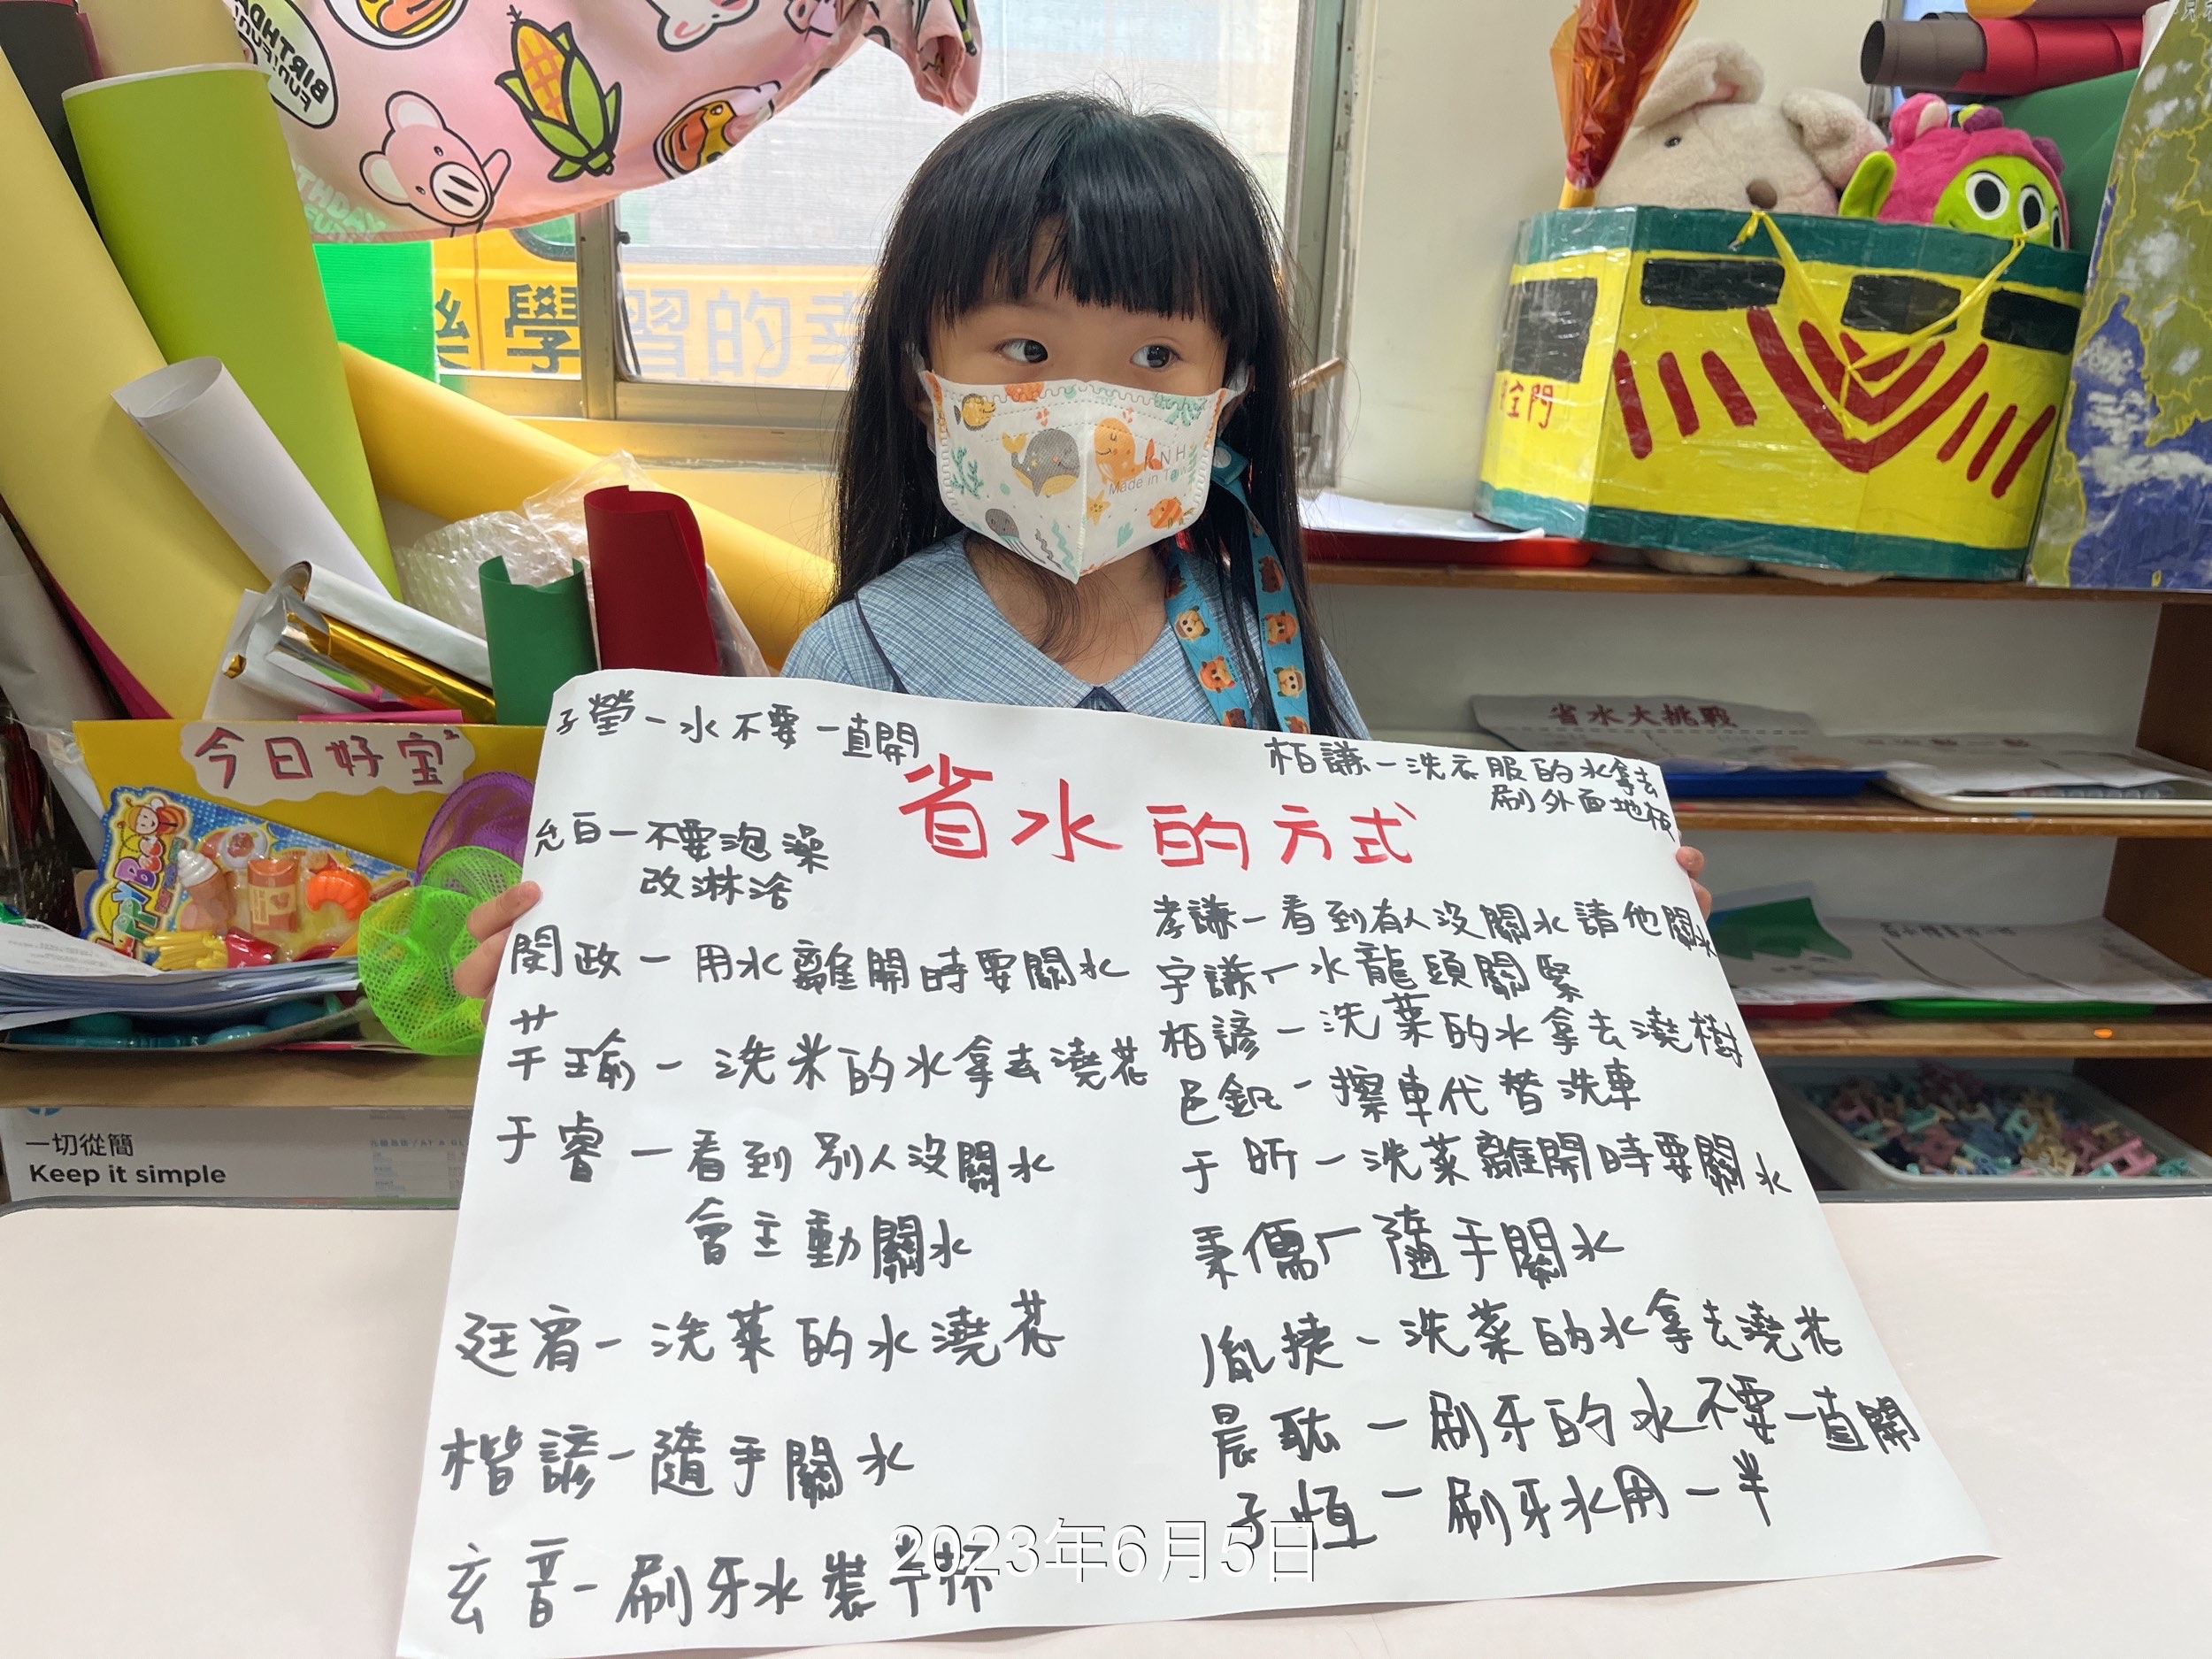 BIRTHDAY
樂學習的幸
全門
KNH
Made in Taiw
今日好宝
HAPPY Bee
省水大挑戰
一切從簡
Keep it simple
省水的方式
子瑩-水不要一直開
允白-不要泡澡
改淋浴
閔政-用水離開時要關水
芊瑜-洗米的水拿去澆花
于睿-看到別人沒關水
會主動關水
廷宥-洗菜的水澆花
楷諺-隨手關水
玄音-刷牙水裝半杯
柏謙-洗衣服的水拿去
刷外面地板
孝謙-看到有人沒關水請他關水
宇謙-水龍頭關緊
柏諺-洗菜的水拿去澆樹
邑釩-擦車代替洗車
于昕-洗菜離開時要關水
秉儒-隨手關水
胤捷-洗菜的水拿去澆花
晨耘-刷牙的水不要一直開
子恆-刷牙水用一半
2023年6月5日